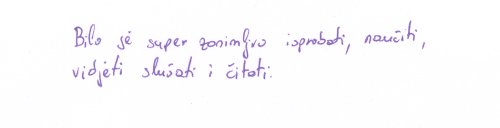 Bilo je super zanimljivo isprobati, naučiti,
vidjeti slušati i čitati.